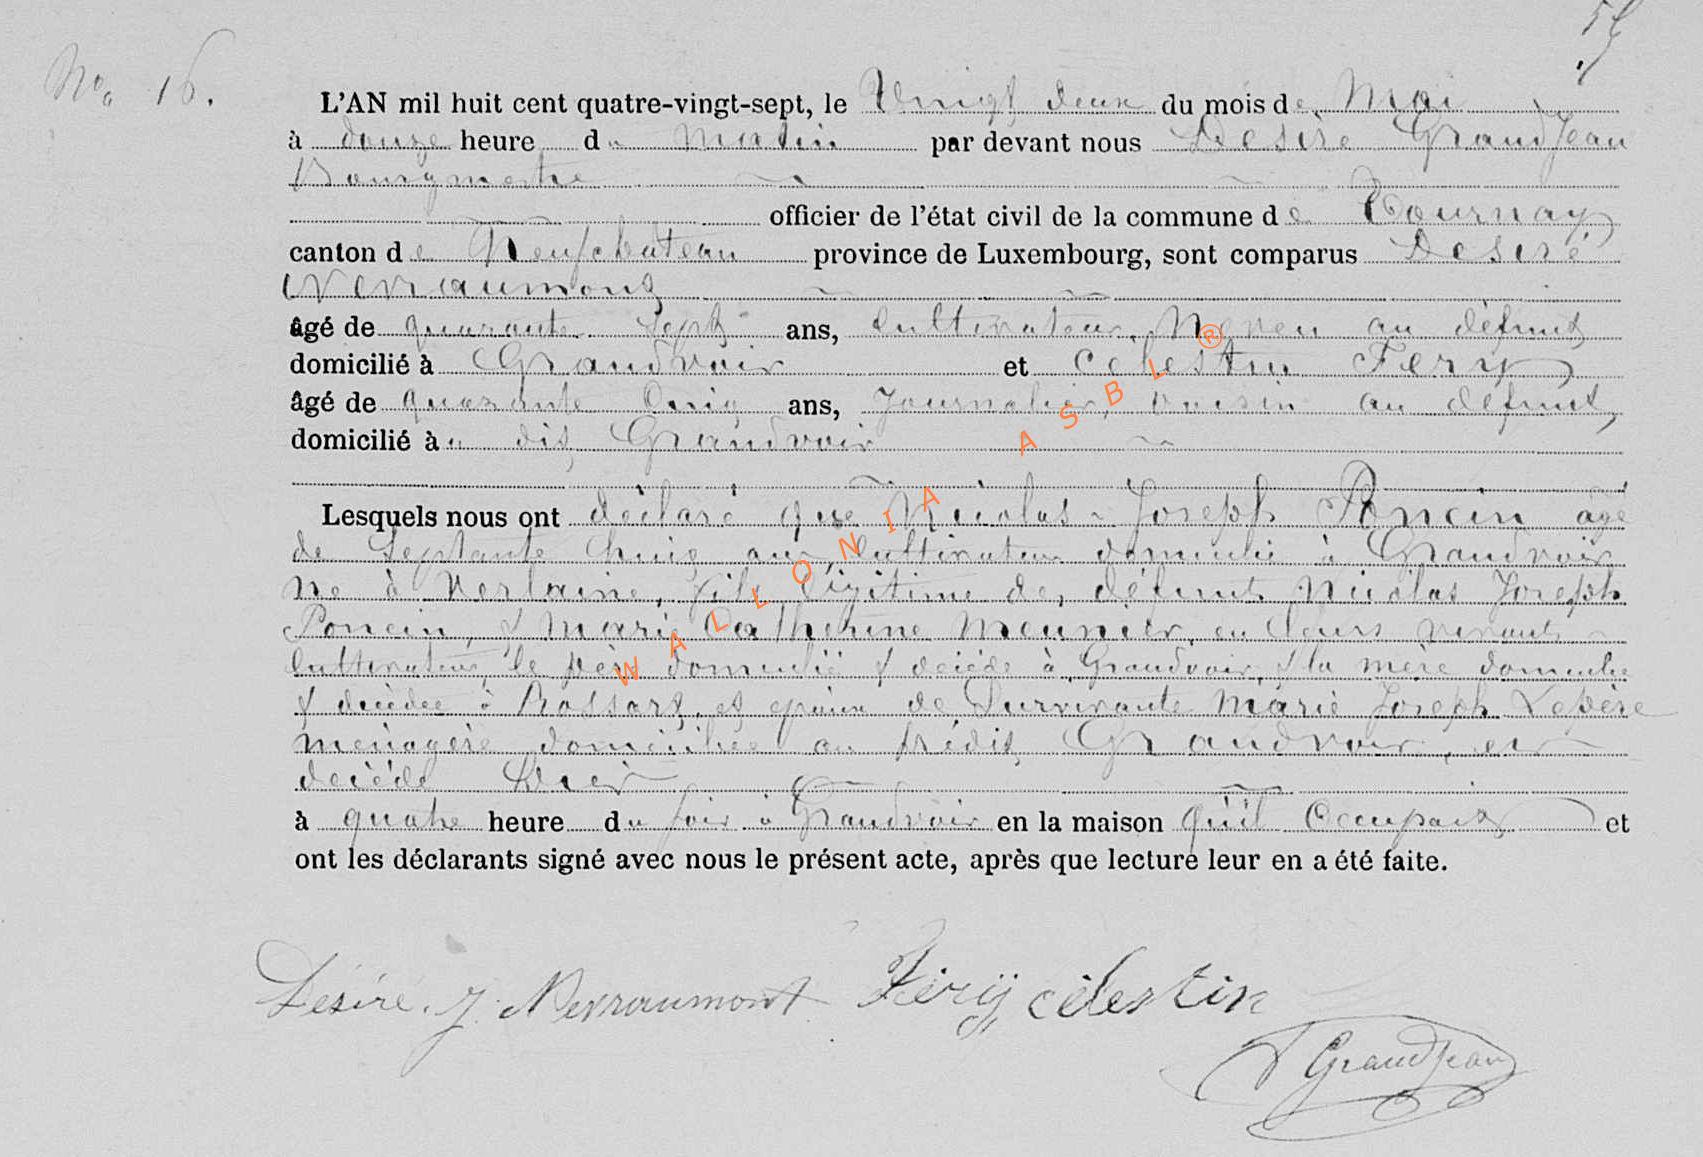 No 16.
L'AN mil huit cent quatre-vingt-sept, le Vingt deux du mois de Mai
à douze heure du matin par devant nous Desiré GrandJean
Bourgmestre
officier de l'état civil de la commune de Tournay
canton de Neufchateau province de Luxembourg, sont comparus Desiré
Nevraumont
âgé de quarante Sept ans, Cultivateur, Neveu au défunt
domicilié à Grandvoir et Célestin Fery
âgé de quarante Cinq ans, Journalier, voisin au défunt,
domicilié à u dit Grandvoir
Lesquels nous ont déclaré que Nicolas - Joseph Poncin agé
de Septante huit ans Cultivateur domicilié à Grandvoir
né à Verlaine, fils légitime de, défunts Nicolas Joseph
Poncin, & Marie Catherine Meunier, en leurs vivants
Cultivateurs, le père domicilié & décédé à Grandvoir, & la mère domiciliée
& décédée à Rossart, et epoux de Survivante Marie Joseph Lepère
menagère domiciliée au prédit Grandvoir, est
décédé hier
à quatre heure du soir à Grandvoir en la maison qu'il Occupait et
ont les déclarants signé avec nous le présent acte, après que lecture leur en a été faite.
Désiré. J. Nevraumont Féry célestin
GrandJean
WALLONIA ASBL ®